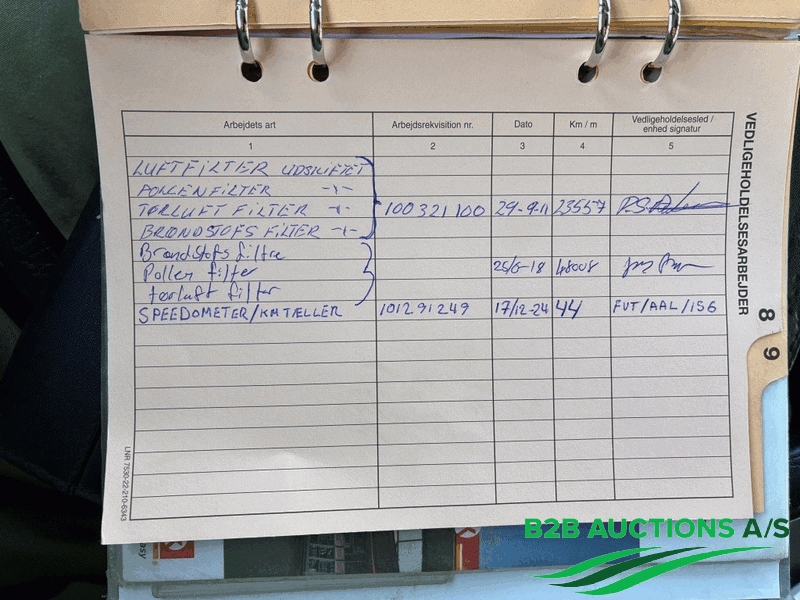 Arbejdets art Arbejdsrekvisition nr. Dato Km / m Vedligeholdelsesled /
enhed signatur
1 2 3 4 5
LUFTFILTER UDSKIFTET
POLLENFILTER -"-
TØRLUFT FILTER -"- 100321100 29-9-11 23557
BRÆNDSTOFS FILTER -"-
Brændstofs filtre
Pollen filter 25/6-18 48008
tørluft filter
SPEEDOMETER/KMTÆLLER 101291249 17/12-24 44 FVT/AAL/156
VEDLIGEHOLDELSESARBEJDER
8
9
LNR 7530-22-210-6343
easy
B2B AUCTIONS A/S